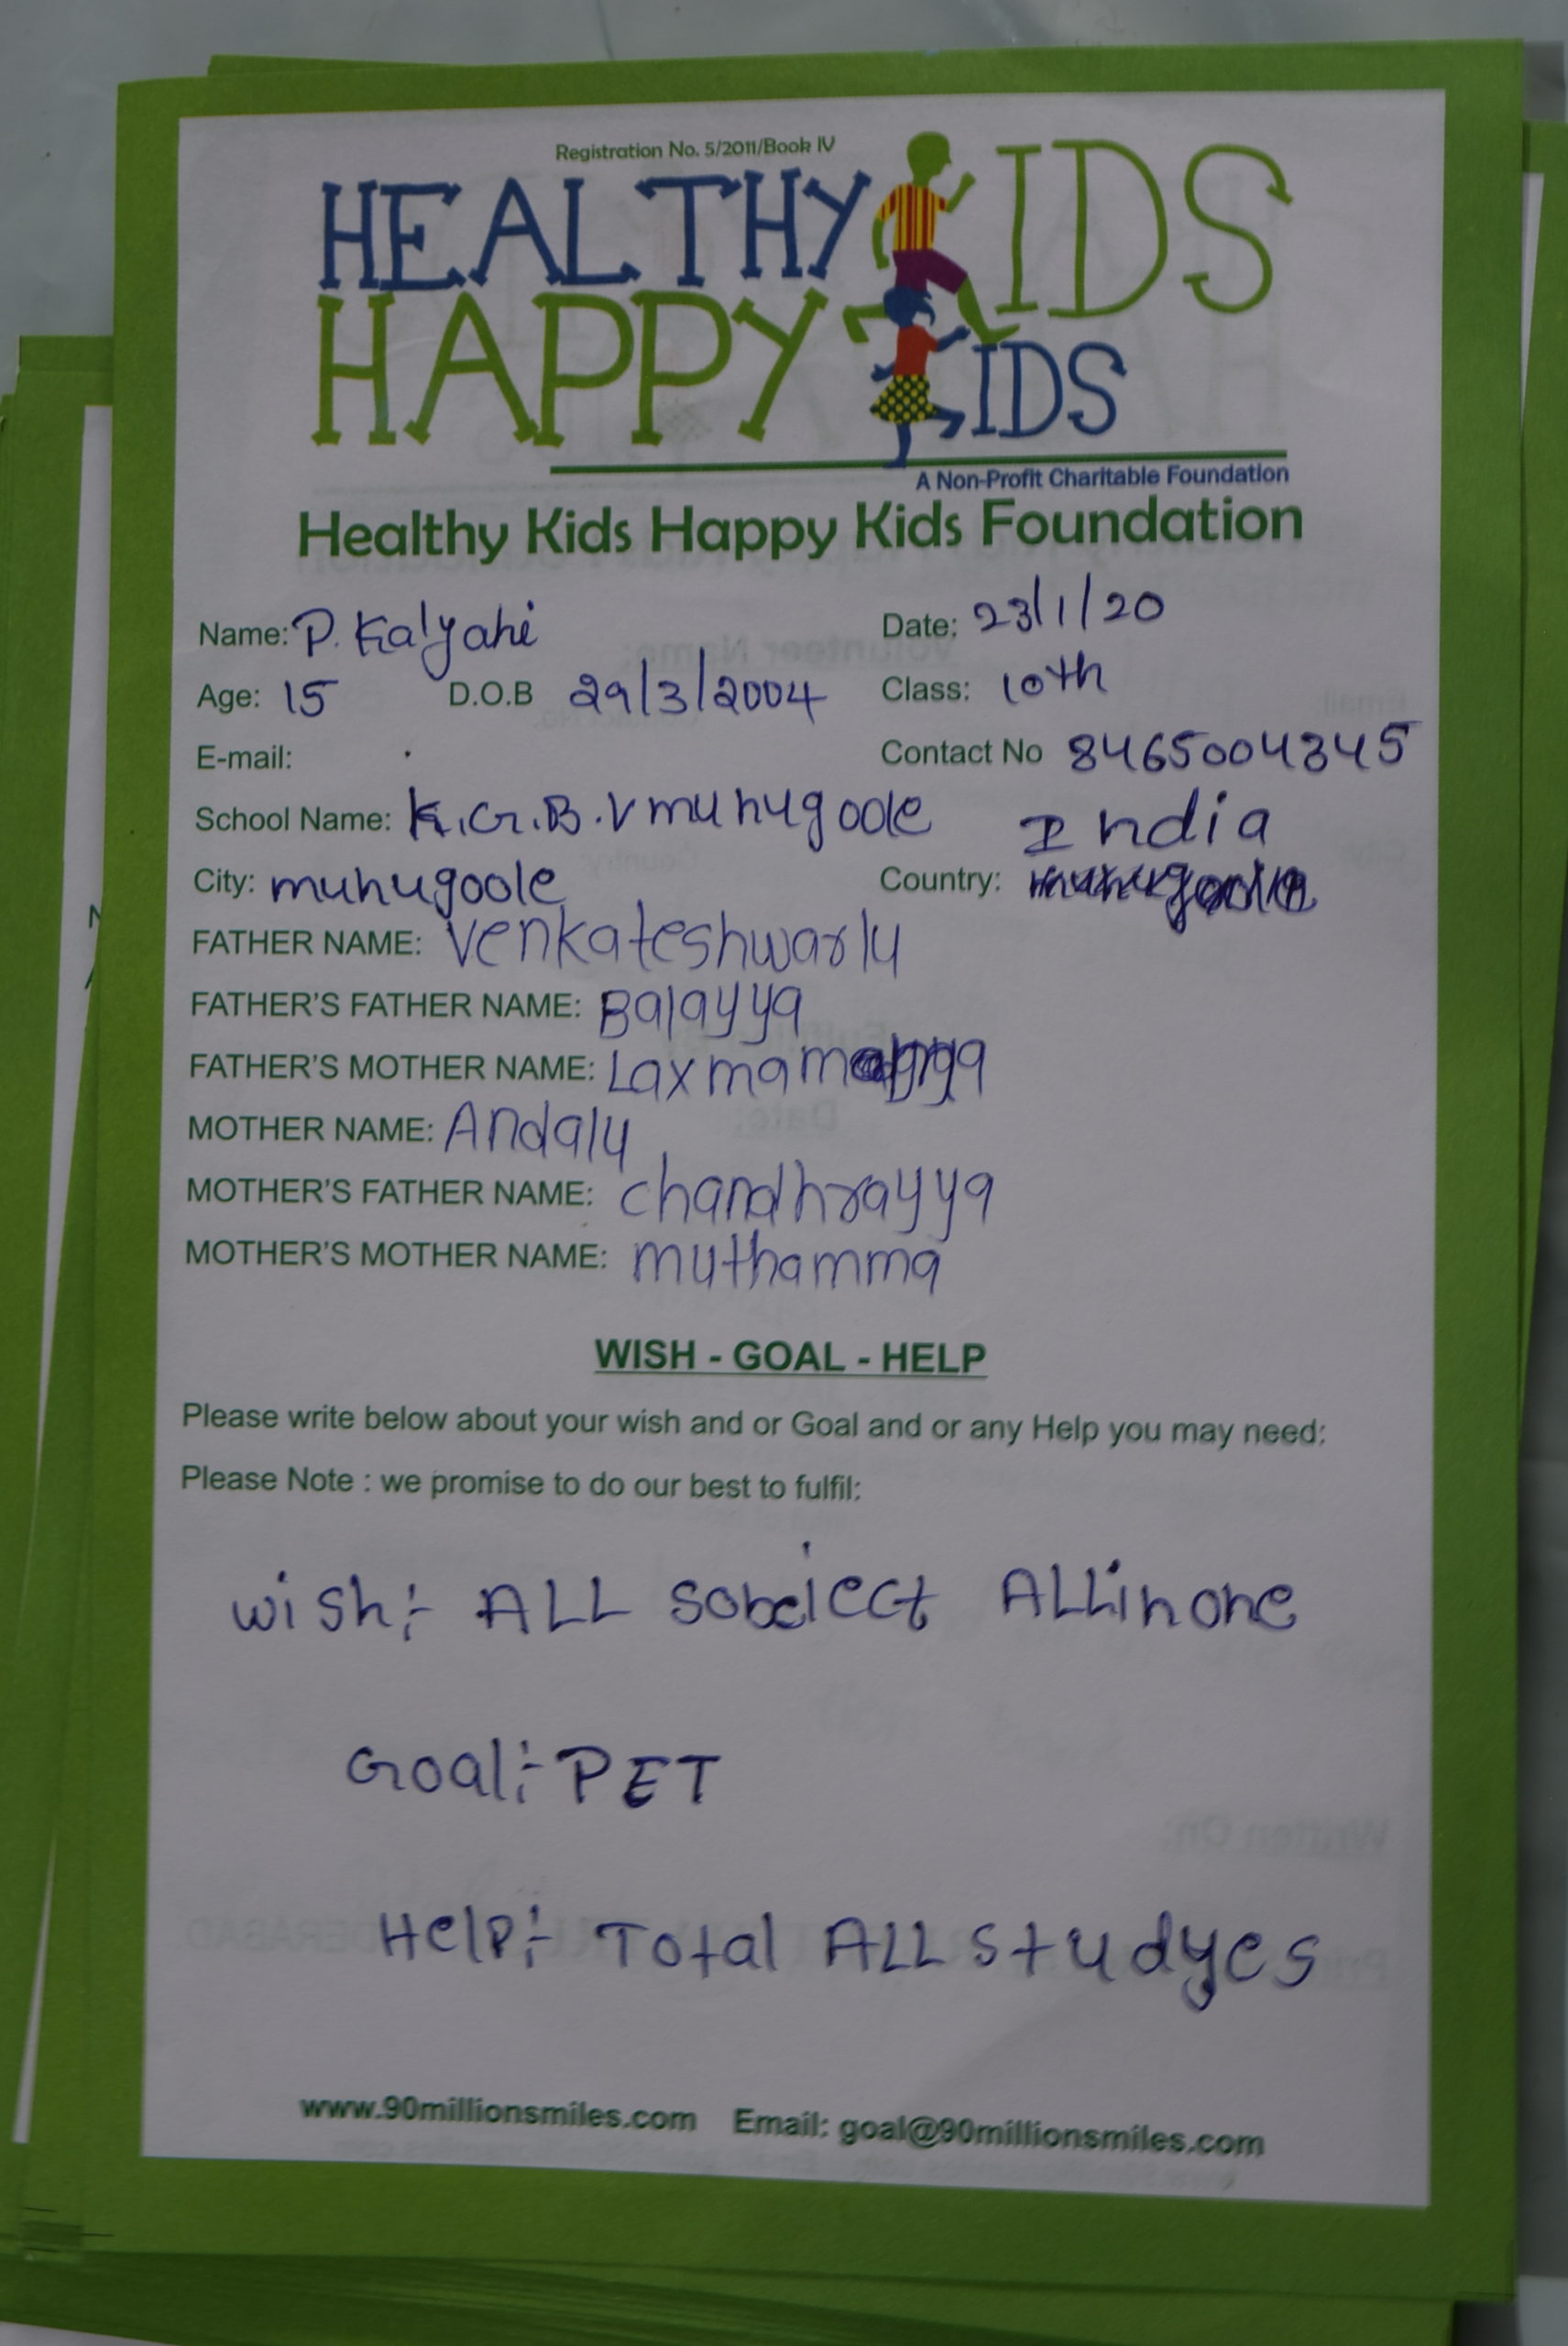 Registration No. 5/2011/Book IV
HEALTHY KIDS
HAPPY KIDS
A Non-Profit Charitable Foundation
Healthy Kids Happy Kids Foundation
Name: P. Kalyani Date: 23/1/20
Age: 15 D.O.B 29/3/2004 Class: 10th
E-mail: Contact No 8465004345
School Name: K.G.B.V munugoole India
City: munugoole Country:
FATHER NAME: venkateshwarlu
FATHER'S FATHER NAME: Balayya
FATHER'S MOTHER NAME:
MOTHER NAME: Andalu
MOTHER'S FATHER NAME: chandhrayya
MOTHER'S MOTHER NAME: muthamma
WISH - GOAL - HELP
Please write below about your wish and or Goal and or any Help you may need:
Please Note : we promise to do our best to fulfil:
wish:- ALL ALLinone
Goal:- PET
Help:- Total ALL studyes
www.90millionsmiles.com Email: goal@90millionsmiles.com